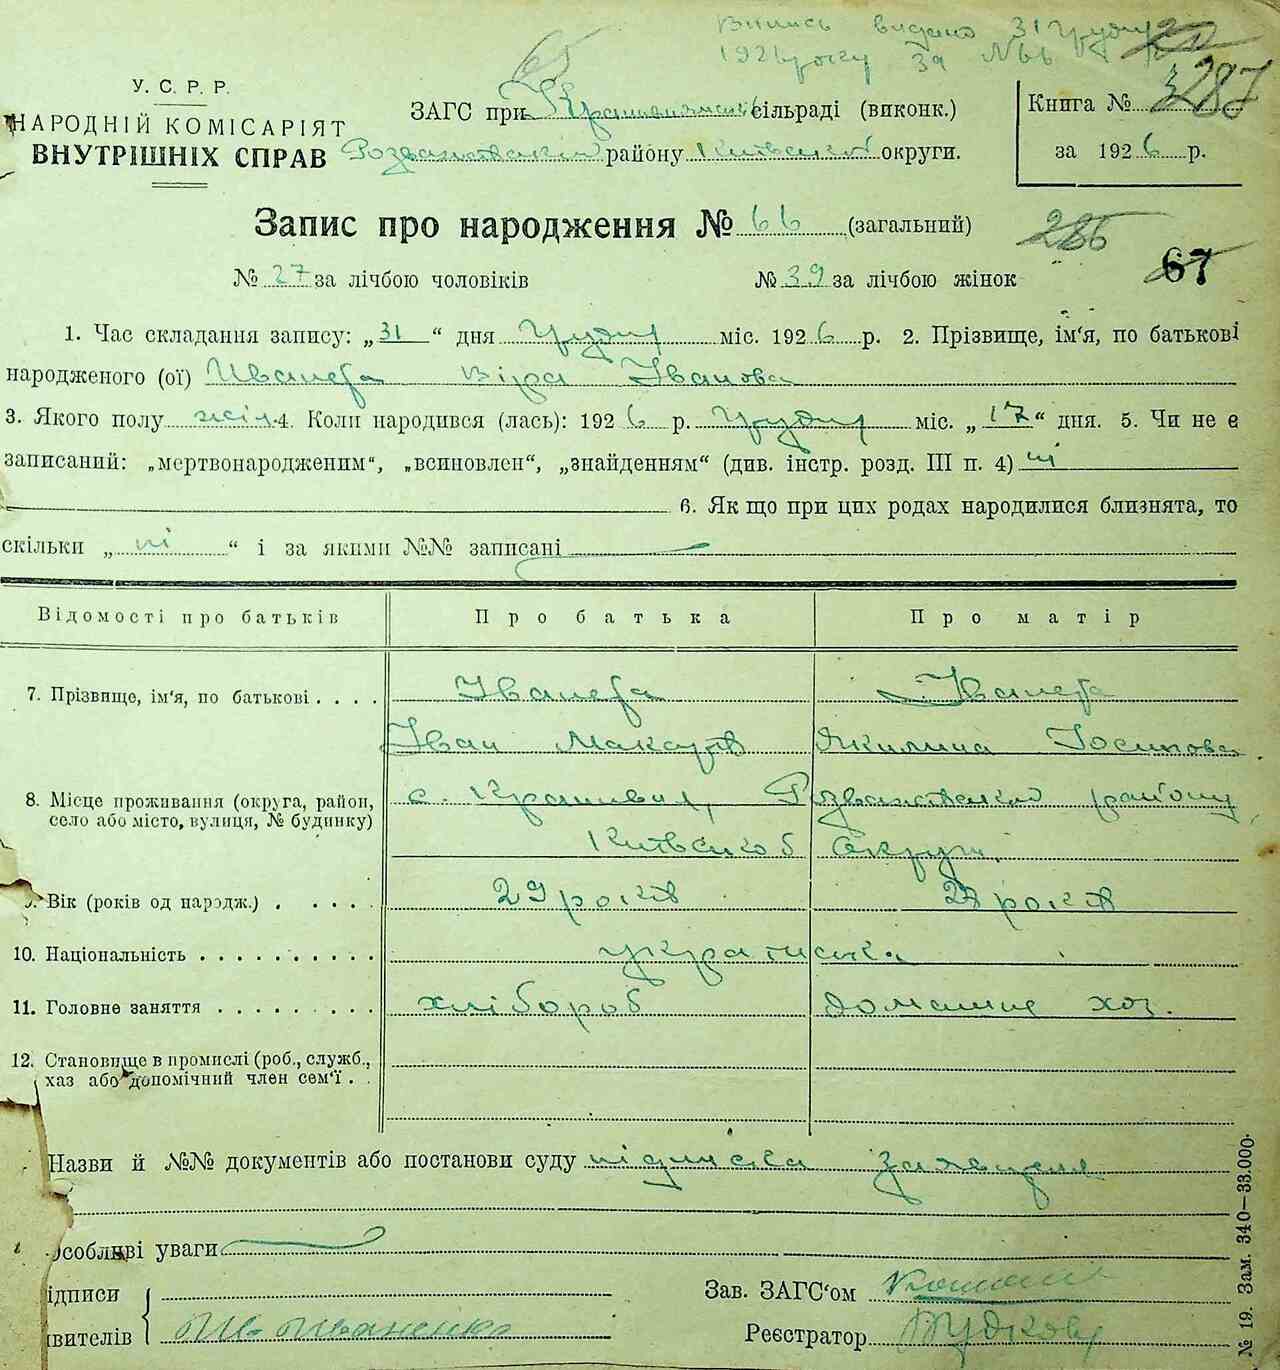 Випись видано 31 грудня
1926 року за №66
65
287
У. С. Р. Р.
НАРОДНІЙ КОМІСАРІЯТ
ВНУТРІШНІХ СПРАВ
ЗАГС при сільраді (виконк.)
району Київської округи.
Книга №
за 1926 р.
Запис про народження № 66 (загальний)
286
67
№ 27 за лічбою чоловіків № 39 за лічбою жінок
1. Час складання запису: „31“ дня грудня міс. 1926 р. 2. Прізвище, ім'я, по батькові
народженого (ої) Віра Іванова
3. Якого полу жін. 4. Коли народився (лась): 1926 р. грудня міс. „17“ дня. 5. Чи не є
записаний: „мертвонародженим“, „всиновлен“, „знайденням“ (див. інстр. розд. III п. 4) ні
6. Як що при цих родах народилися близнята, то
скільки „ ні “ і за якими №№ записані
Відомості про батьків Про батька Про матір
7. Прізвище, ім'я, по батькові . . . .
Іван Макарів Якилина Йосипова
8. Місце проживання (округа, район, село або місто, вулиця, № будинку)
с. району
Київської округи.
9. Вік (років од народж.) . . . . . 29 років 28 років
10. Національність . . . . . . . . . . українська
11. Головне заняття . . . . . . . . . хлібороб домашнє хоз.
12. Становище в промислі (роб., служб.,
хаз або допомічний член сем'ї . .
Назви й №№ документів або постанови суду підписка заявителя
Особливі уваги
ідписи
явителів Іваненко
Зав. ЗАГС'ом
Реєстратор
№ 19. Зам. 340—33.000.